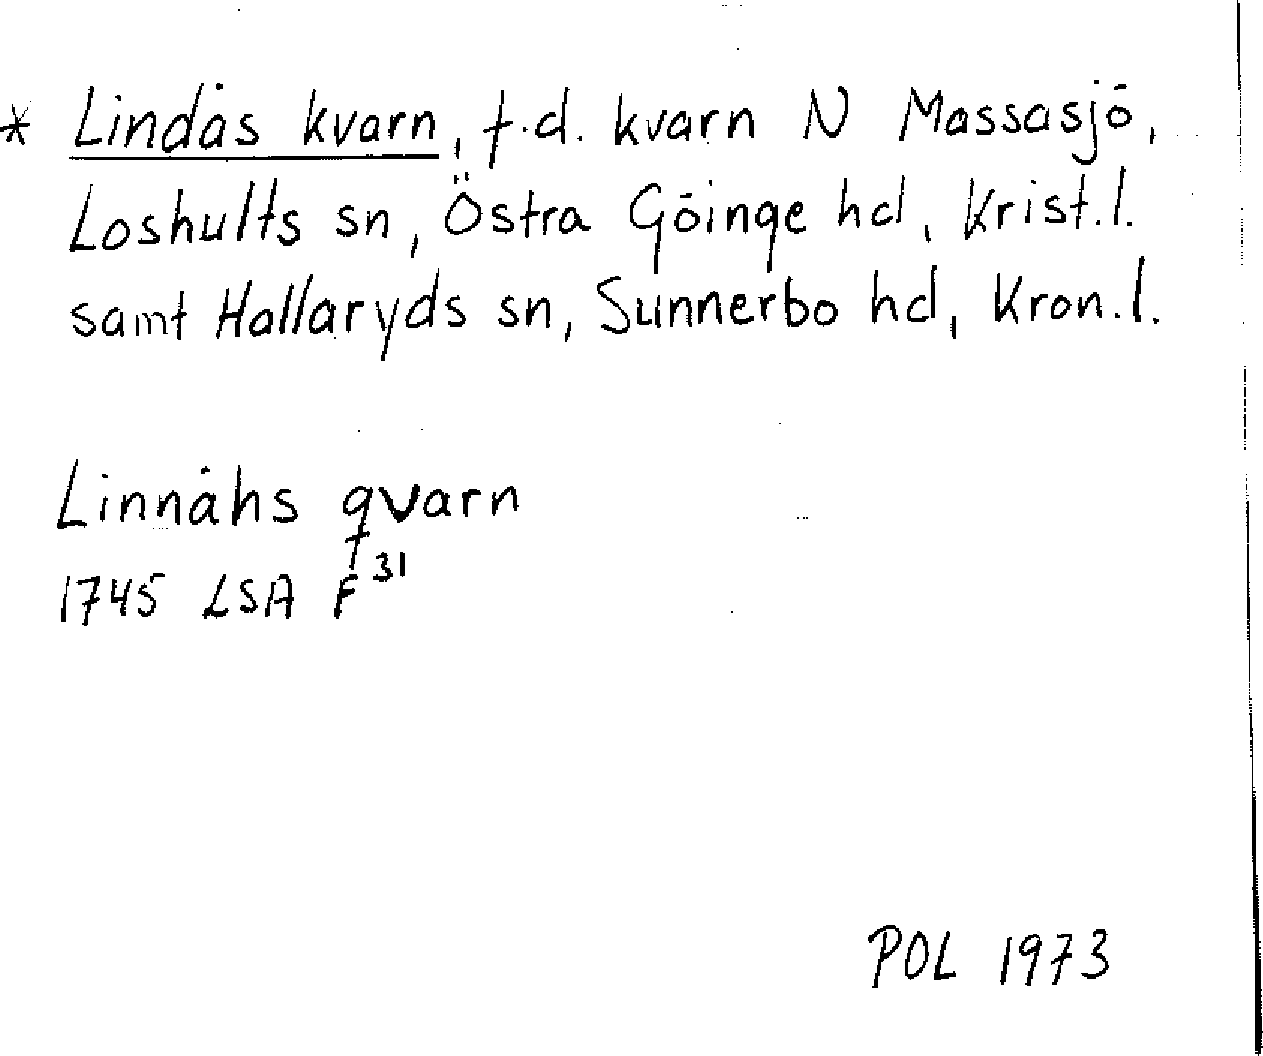 * Lindås kvarn, f.d. kvarn N Massasjö,
Loshults sn, Östra Göinge hd, Krist.l.
samt Hallaryds sn, Sunnerbo hd, Kron.l.
Linnåhs qvarn
1745 LSA F³¹
POL 1973